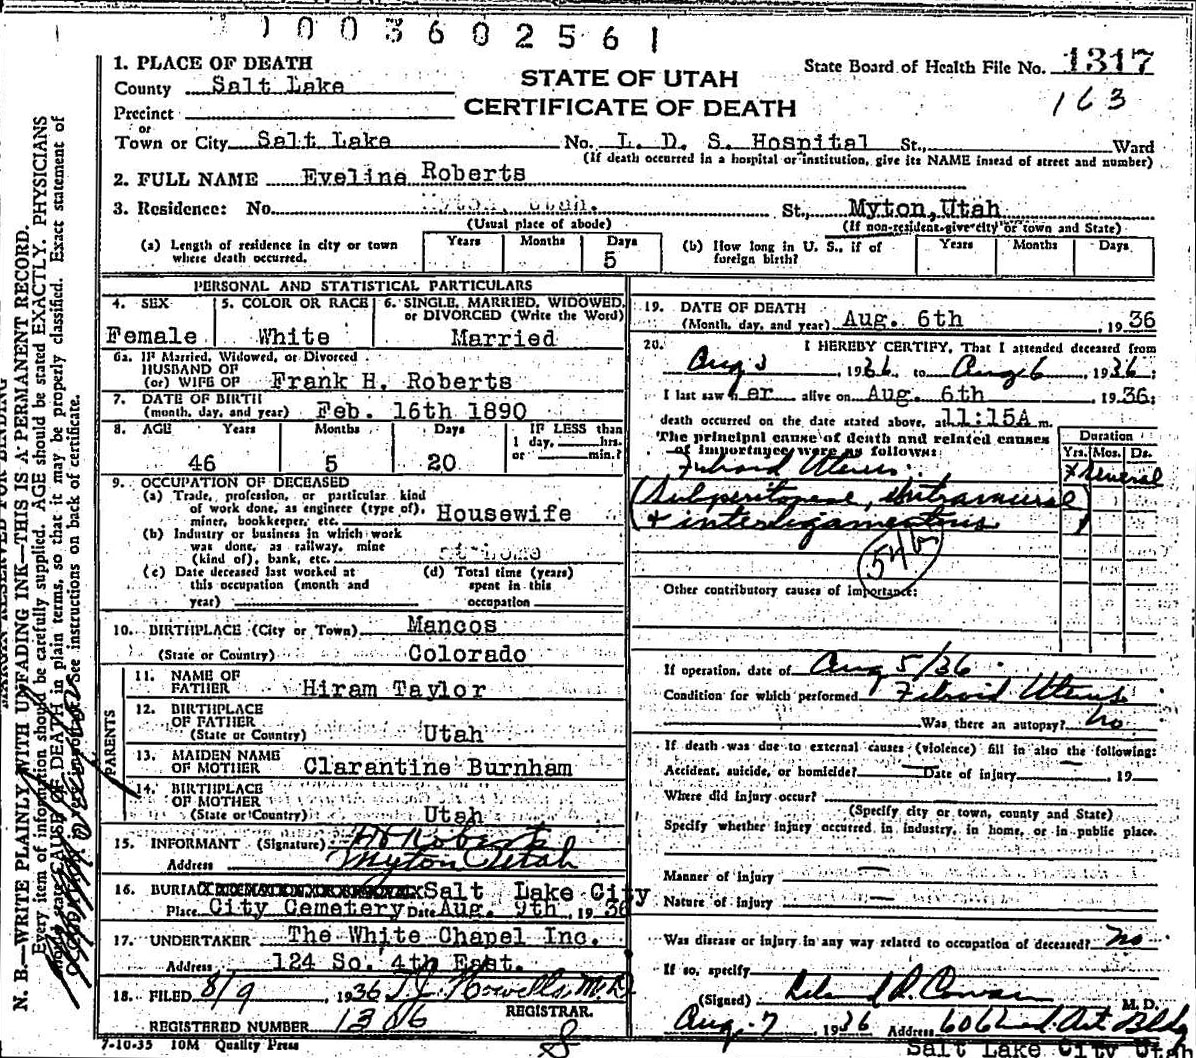 1003602561
1. PLACE OF DEATH
County Salt Lake
STATE OF UTAH
CERTIFICATE OF DEATH
State Board of Health File No. 1317
163
Precinct
or
Town or City Salt Lake No. L. D. S. Hospital St., Ward
(If death occurred in a hospital or institution, give its NAME instead of street and number)
2. FULL NAME Eveline Roberts
3. Residence: No. Myton, Utah. St., Myton, Utah
(Usual place of abode) (If non-resident give city or town and State)
(a) Length of residence in city or town where death occurred. Years Months Days 5
(b) How long in U. S., if of foreign birth? Years Months Days
PERSONAL AND STATISTICAL PARTICULARS
4. SEX Female
5. COLOR OR RACE White
6. SINGLE, MARRIED, WIDOWED, or DIVORCED (Write the Word) Married
6a. IF Married, Widowed, or Divorced
HUSBAND OF
(or) WIFE OF Frank H. Roberts
7. DATE OF BIRTH
(month, day, and year) Feb. 16th 1890
8. AGE Years Months Days IF LESS than
1 day, hrs.
or min.?
46 5 20
9. OCCUPATION OF DECEASED
(a) Trade, profession, or particular kind
of work done, as engineer (type of),
miner, bookkeeper, etc. Housewife
(b) Industry or business in which work
was done, as railway, mine
(kind of), bank, etc. at home
(c) Date deceased last worked at
this occupation (month and
year)
(d) Total time (years)
spent in this
occupation
10. BIRTHPLACE (City or Town) Mancos
(State or Country) Colorado
PARENTS
11. NAME OF
FATHER Hiram Taylor
12. BIRTHPLACE
OF FATHER
(State or Country) Utah
13. MAIDEN NAME
OF MOTHER Clarantine Burnham
14. BIRTHPLACE
OF MOTHER
(State or Country) Utah
15. INFORMANT (Signature) F H Roberts
Address Myton Utah
16. BURIAL Salt Lake City
Place City Cemetery Date Aug. 9th, 1936
17. UNDERTAKER The White Chapel Inc.
Address 124 So. 4th East.
18. FILED 8/9, 1936 M.D.
REGISTRAR.
REGISTERED NUMBER 1306
7-10-35 10M Quality Press
8
19. DATE OF DEATH
(Month, day, and year) Aug. 6th, 1936
20. I HEREBY CERTIFY, That I attended deceased from
Aug 3, 1936, to Aug 6, 1936;
I last saw her alive on Aug. 6th, 1936;
death occurred on the date stated above, at 11:15A m.
The principal cause of death and related causes
of importance were as follows:
Duration
Yrs. Mos. Ds.
Fibroid Uterus. Several
(Subperitoneal, intramural
& interligamentous)
54b
Other contributory causes of importance:
If operation, date of Aug 5/36
Condition for which performed Fibroid Uterus
Was there an autopsy? No
If death was due to external causes (violence) fill in also the following:
Accident, suicide, or homicide? Date of injury , 19
Where did injury occur?
(Specify city or town, county and State)
Specify whether injury occurred in industry, in home, or in public place.
Manner of injury
Nature of injury
Was disease or injury in any way related to occupation of deceased? No
If so, specify
(Signed) Leland R. Cowan M. D.
Aug. 7, 1936 Address 606 Med. Art Bldg
Salt Lake City Utah
N. B.—WRITE PLAINLY, WITH UNFADING INK—THIS IS A PERMANENT RECORD.
Every item of information should be carefully supplied. AGE should be stated EXACTLY. PHYSICIANS
should state CAUSE OF DEATH in plain terms, so that it may be properly classified. Exact statement of
OCCUPATION is very important. See instructions on back of certificate.